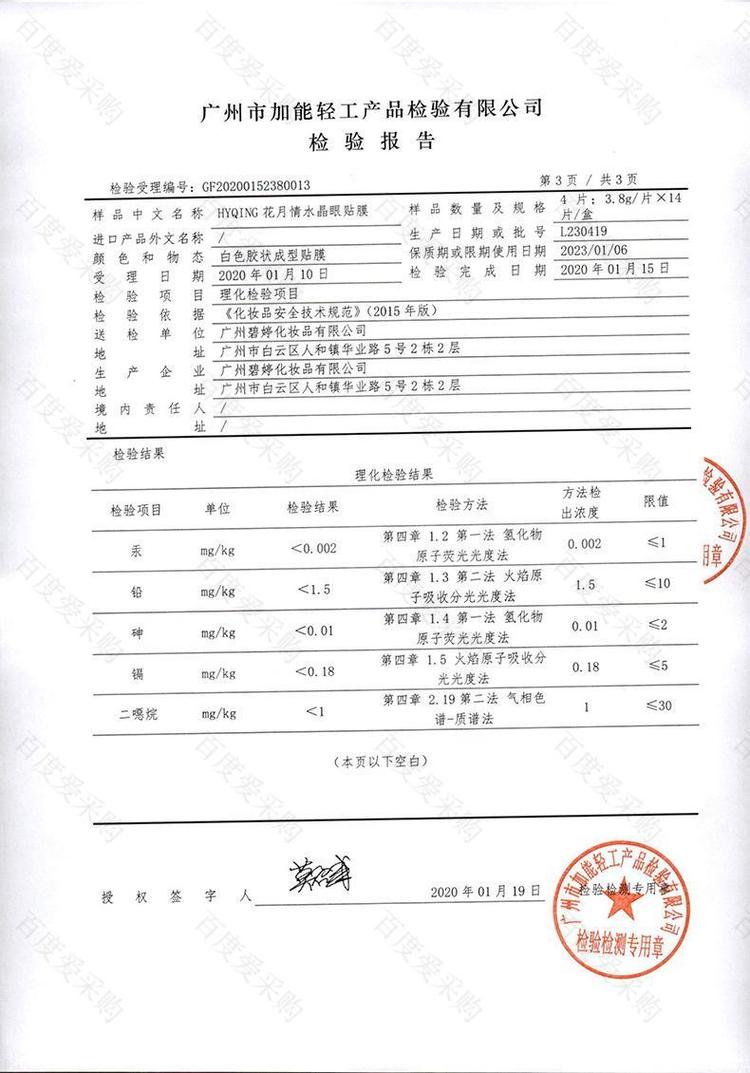 广州市加能轻工产品检验有限公司
检验报告
检验受理编号：GF20200152380013
第3页 / 共3页
样品中文名称 HYQING 花月情水晶眼贴膜 样品数量及规格 4 片；3.8g/片×14
片/盒
进口产品外文名称 / 生产日期或批号 L230419
颜色和物态 白色胶状成型贴膜 保质期或限期使用日期 2023/01/06
受理日期 2020年01月10日 检验完成日期 2020年01月15日
检验项目 理化检验项目
检验依据 《化妆品安全技术规范》（2015年版）
送检单位 广州碧婷化妆品有限公司
地址 广州市白云区人和镇华业路5号2栋2层
生产企业 广州碧婷化妆品有限公司
地址 广州市白云区人和镇华业路5号2栋2层
境内责任人 /
地址 /
检验结果
理化检验结果
检验项目 单位 检验结果 检验方法 方法检
出浓度 限值
汞 mg/kg <0.002 第四章 1.2 第一法 氢化物
原子荧光光度法 0.002 ≤1
铅 mg/kg <1.5 第四章 1.3 第二法 火焰原
子吸收分光光度法 1.5 ≤10
砷 mg/kg <0.01 第四章 1.4 第一法 氢化物
原子荧光光度法 0.01 ≤2
镉 mg/kg <0.18 第四章 1.5 火焰原子吸收分
光光度法 0.18 ≤5
二噁烷 mg/kg <1 第四章 2.19第二法 气相色
谱-质谱法 1 ≤30
（本页以下空白）
授权签字人
2020年01月19日
检验检测专用章
广州市加能轻工产品检验有限公司
检验检测专用章
检验有限公司
用章
百度爱采购